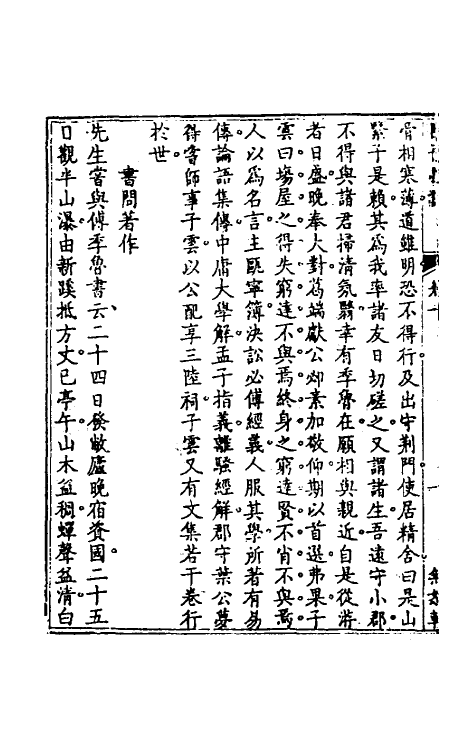 骨相寒薄道雖明恐不得行及出守荆門使居精舍曰是山
繄子是賴其爲我率諸友日切磋之又謂諸生吾遠守小郡
不得與諸君掃清氛翳幸有季魯在願相與親近自是從游
者日盛晚奉大對葛端獻公邲素加敬仰期以首選弗果子
雲曰塲屋之得失窮達不與焉終身之窮達賢不肖不與焉
人以爲名言主甌寧簿決訟必傅經義人服其學所著有易
傳論語集傳中庸大學解孟子指義離騷經解郡守葉公夢
得嘗師事子雲以公配享三陸祠子雲又有文集若干卷行
於世
書問著作
先生嘗與傅季魯書云二十四日發敝廬晚宿資國二十五
日觀半山瀑由新蹊抵方丈已亭午山木益稠蟬聲益清白